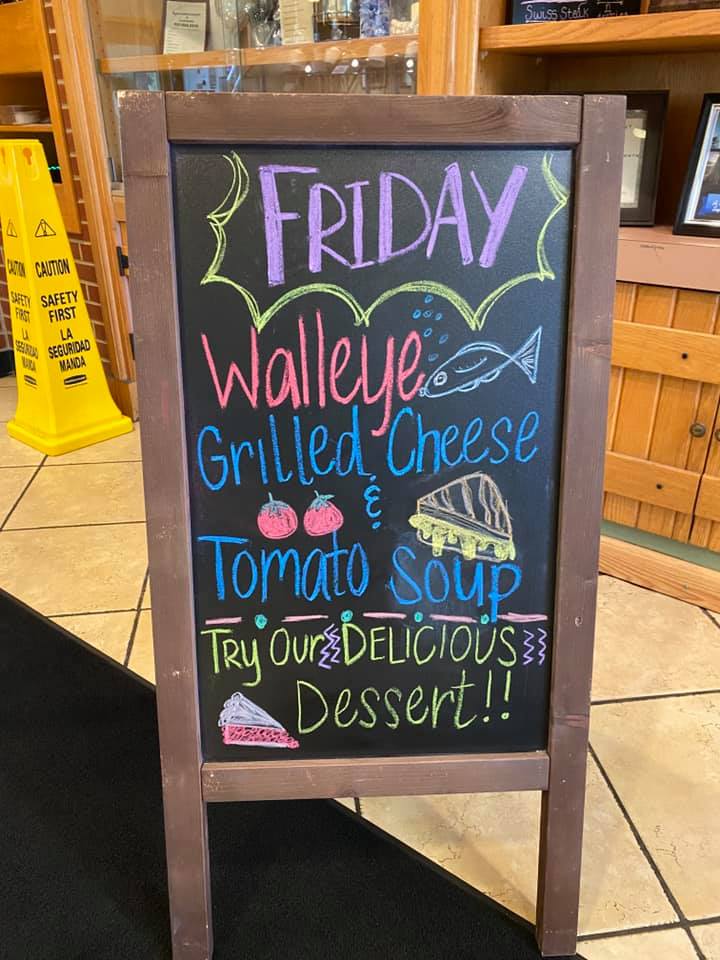 Swiss Steak
FRIDAY
Walleye
Grilled Cheese
&
Tomato Soup
Try Our DELICIOUS
Dessert!!
CAUTION
CAUTION
SAFETY
FIRST
LA
SEGURIDAD
MANDA
SAFETY
FIRST
LA
SEGURIDAD
MANDA